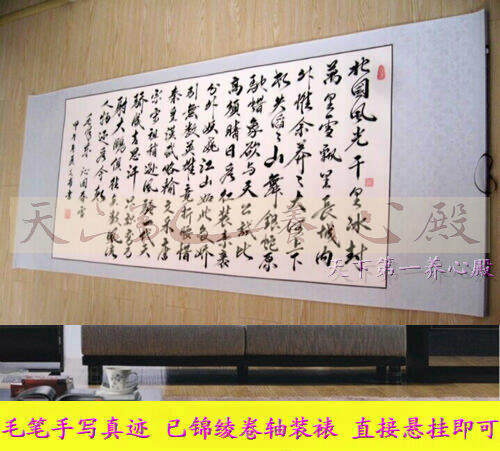 北国风光千里冰封
万里雪飘望长城内
外惟余莽莽大河上下
顿失滔滔山舞银蛇原
驰蜡象欲与天公试比
高须晴日看红装素裹
分外妖娆江山如此多娇
引无数英雄竞折腰惜
秦皇汉武略输文采唐
宗宋祖稍逊风骚一代天
骄成吉思汗只识弯弓
射大雕俱往矣数风流
人物还看今朝
沁园春雪
天下第一养心殿
毛笔手写真迹 已锦绫卷轴装裱 直接悬挂即可